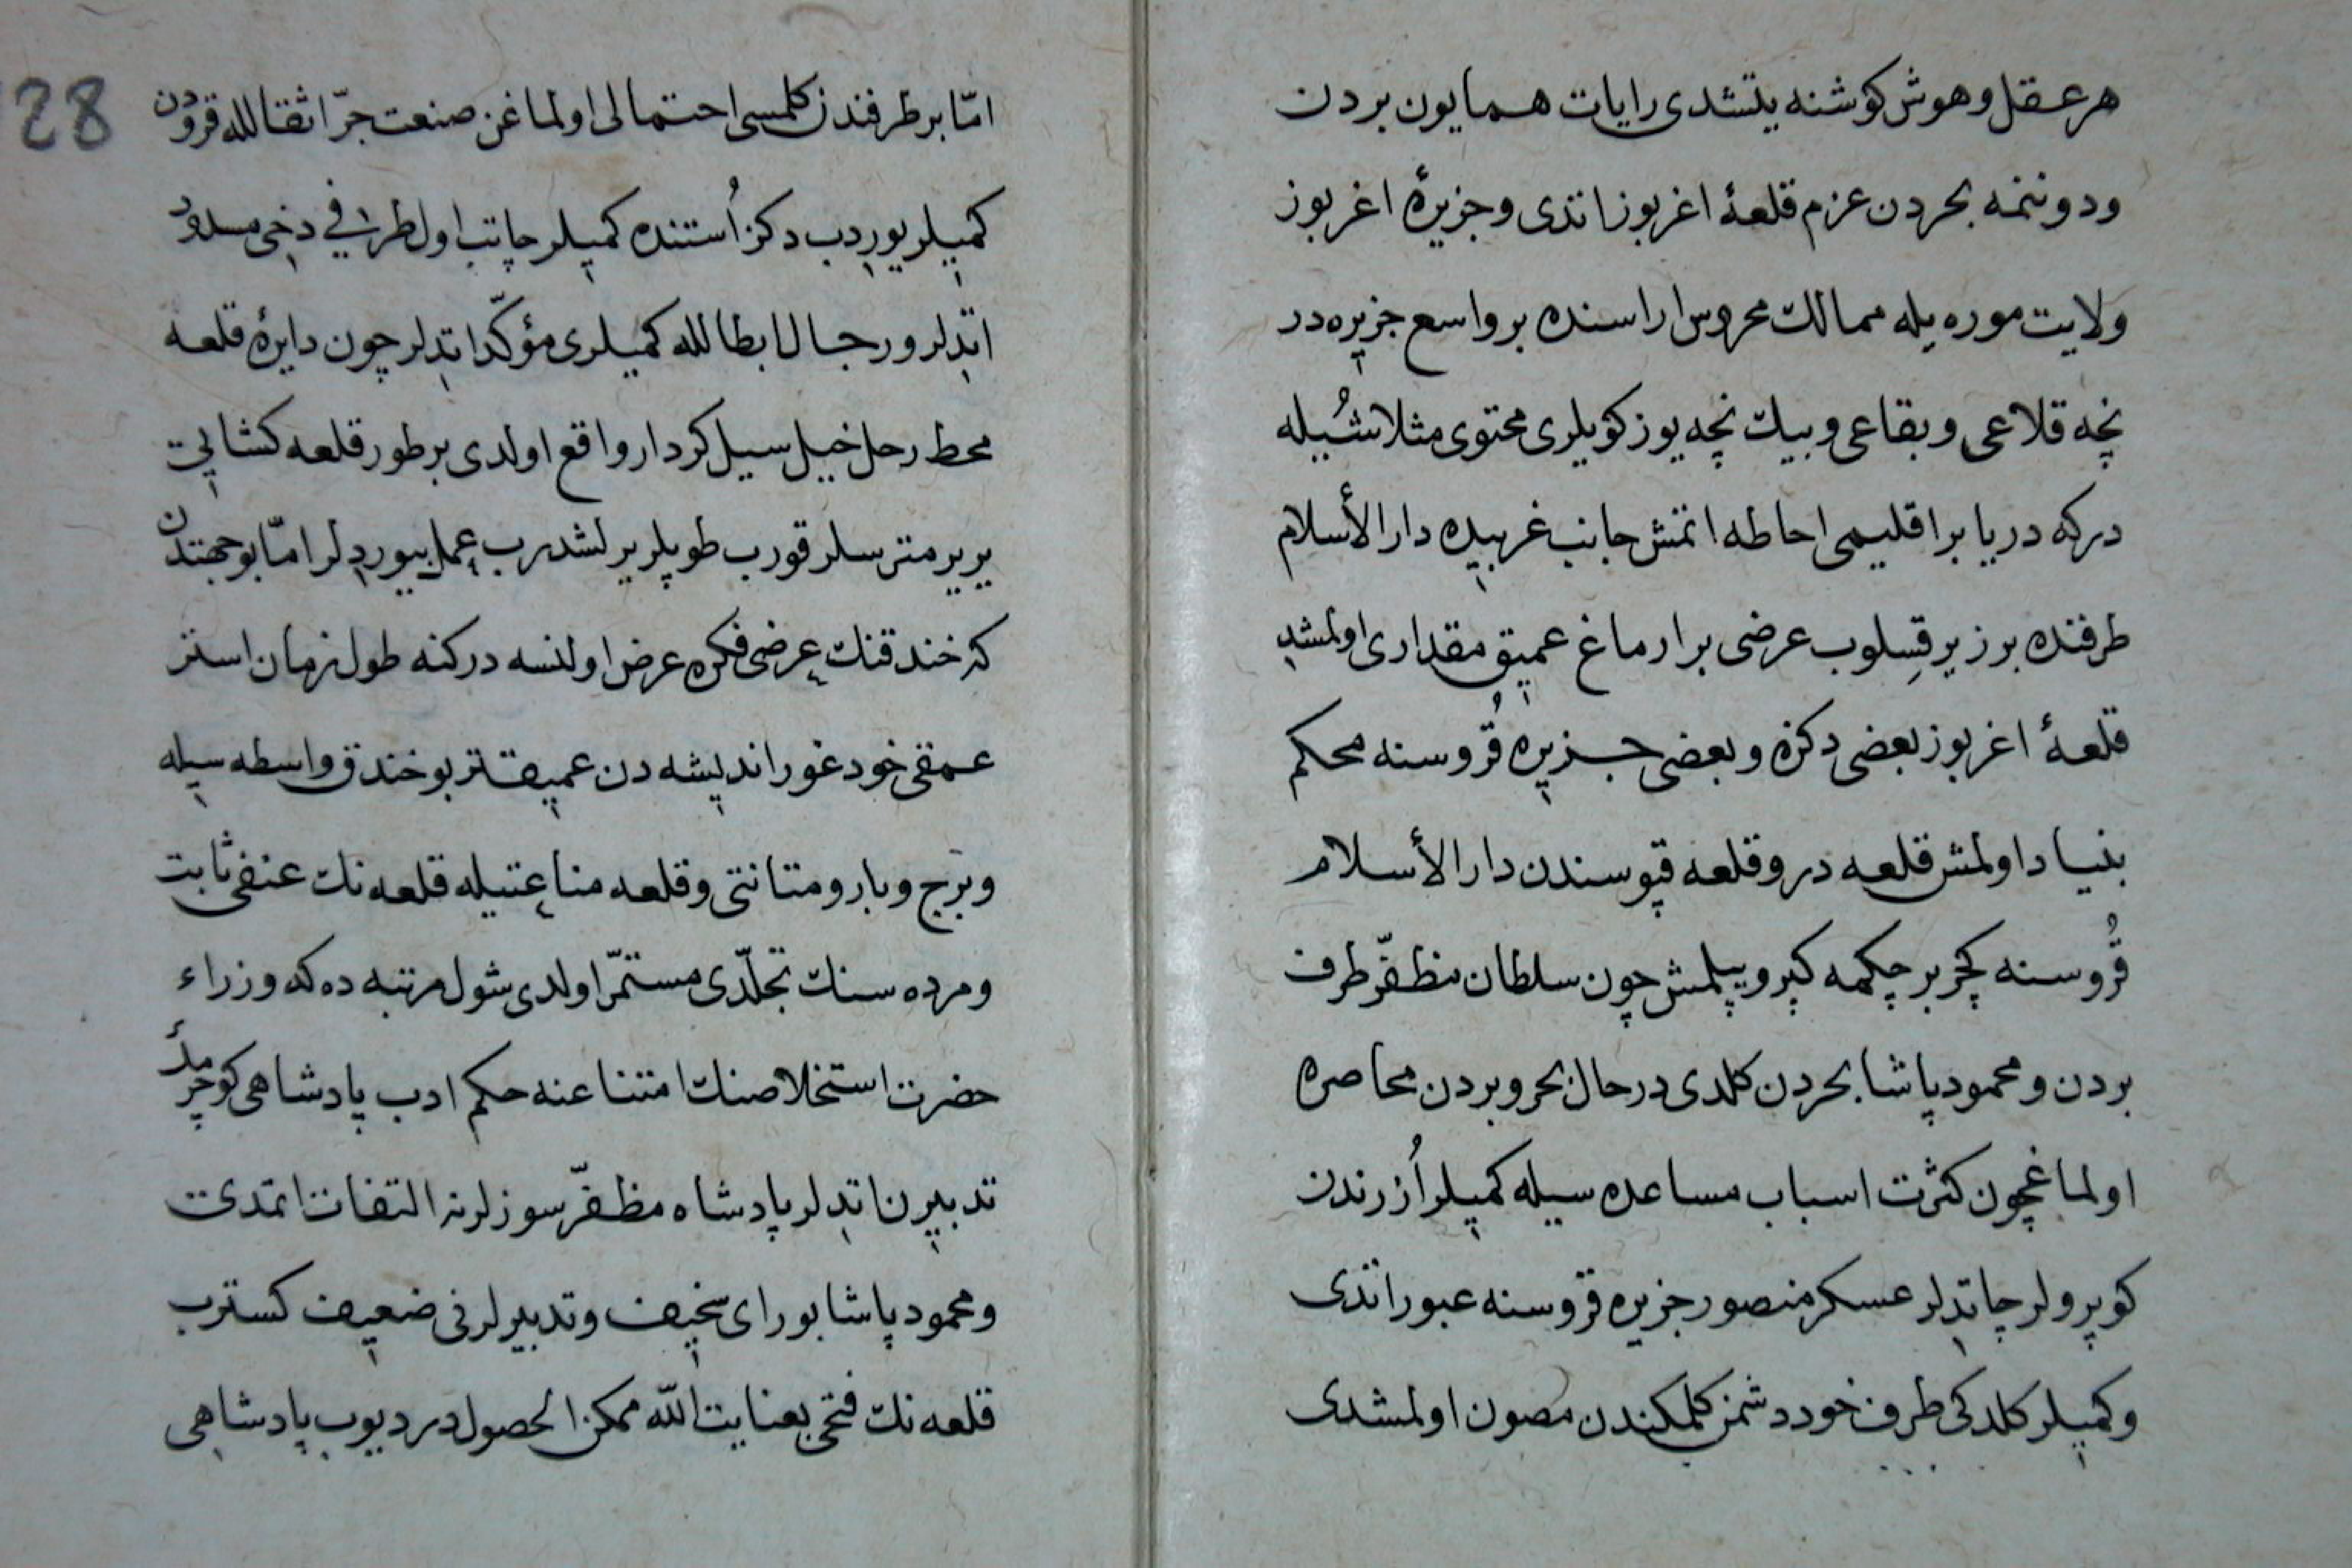 هر عقل و هوش كوشنه يتشدى رايات همايون بردن
ودوننمه بحردن عزم قلعۀ اغربوز اتدى وجزيرۀ اغربوز
ولايت موره يله ممالك محروس اراسنده بر واسع جزيره در
نچه قلاعى و بقاعى و بيك نچه يوز كويلرى محتوى مثلا شُيله
دركه دريا بر اقليمى احاطه اتمش جانب غربيده دار الأسلام
طرفنده بوز ير قسلوب عرضى بر ارماغ عميق مقدارى اولمشد
قلعۀ اغربوز بعضى دكزه و بعضى جزيره قُروسنه محكم
بنياد اولمش قلعه در وقلعه قپوسندن دار الأسلام
قُروسنه كچر بر چكمه كپرو يپلمش چون سلطان مظفّر طرف
بردن و محمود پاشا بحردن كلدى درحال بحر وبردن محاصره
اولماغچون كثرت اسباب مساعده سيله كميلر اُزرندن
كوپرولر چاتدلر عسكر منصور جزيره قروسنه عبور اتدى
وكميلر كلدكى طرف خود دشمن كلمكندن مصون اولمشدى
امّا بر طرفندن كلمسى احتمالى اولماغن صنعت جرّ اثقالله قرودن
كميلر يوردب دكز اُستنده كميلر چاتب اول طرفي دخى مسدود
اتدلر ورجال ابطالله كميلرى مؤكّد اتدلر چون دايرۀ قلعه
محط رحل خيل سيل كردار واقع اولدى بر طور قلعه كشايى
ير ير متر سلر قورب طوپلر يرلشدرب عمل بيوردلر امّا بو جهتدن
كه خندقنك عرضى فكره عرض اولنسه دركنه طول زمان استر
عمقى خود غور انديشه دن عميقتر بو خندق واسطه سيله
وبرج وبارو متانتى وقلعه مناعتيله قلعه نك عنفى ثابت
ومرده سنك تجلّدى مستمرّ اولدى شول مرتبه ده كه وزراء
حضرت استخلاصنك امتناعنه حكم ادب پادشاهى كوچرمك
تدبيرن اتدلر پادشاه مظفّر سوزلرنه التفات اتمدى
ومحمود پاشا بو راى سخيف وتدبيرلرنى ضعيف كسترب
قلعه نك فتحى بعنايت اللّه ممكن الحصولدر ديوب پادشاهى